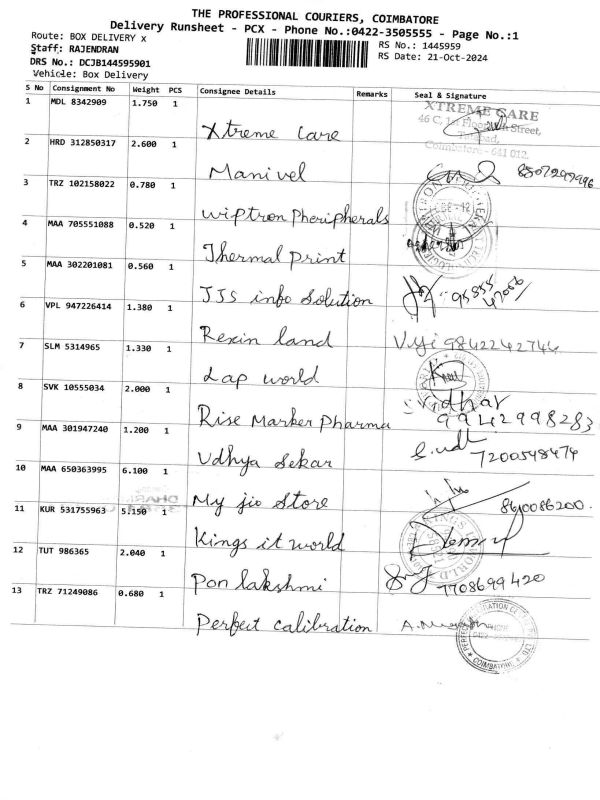 THE PROFESSIONAL COURIERS, COIMBATORE
Delivery Runsheet - PCX - Phone No.:0422-3505555 - Page No.:1
Route: BOX DELIVERY X
RS No.: 1445959
Staff: RAJENDRAN
RS Date: 21-Oct-2024
DRS No.: DCJB144595901
Vehicle: Box Delivery
S No Consignment No Weight PCS Consignee Details Remarks Seal & Signature
1 MDL 8342909 1.750 1 Xtreme Care
XTREME CARE
46 C, 1st Floor, Street,
Coimbatore - 641 012.
2 HRD 312850317 2.600 1 Manivel
3 TRZ 102158022 0.780 1 Wiptron Pheripherals
4 MAA 705551088 0.520 1 Thermal print
5 MAA 302201081 0.560 1 JJS info Solution 95855 47056
6 VPL 947226414 1.380 1 Rexin land Viji 9842242744
7 SLM 5314965 1.330 1 Lap world
8 SVK 10555034 2.000 1 Rise Marker Pharma 9942998283
9 MAA 301947240 1.200 1 Udhya Sekar 7200548474
10 MAA 650363995 6.100 1 My jio Store 8610086200
11 KUR 531755963 5.150 1 Kings it world
12 TUT 986365 2.040 1 Pon lakshmi 7708699420
13 TRZ 71249086 0.680 1 Perfect calibration
COIMBATORE